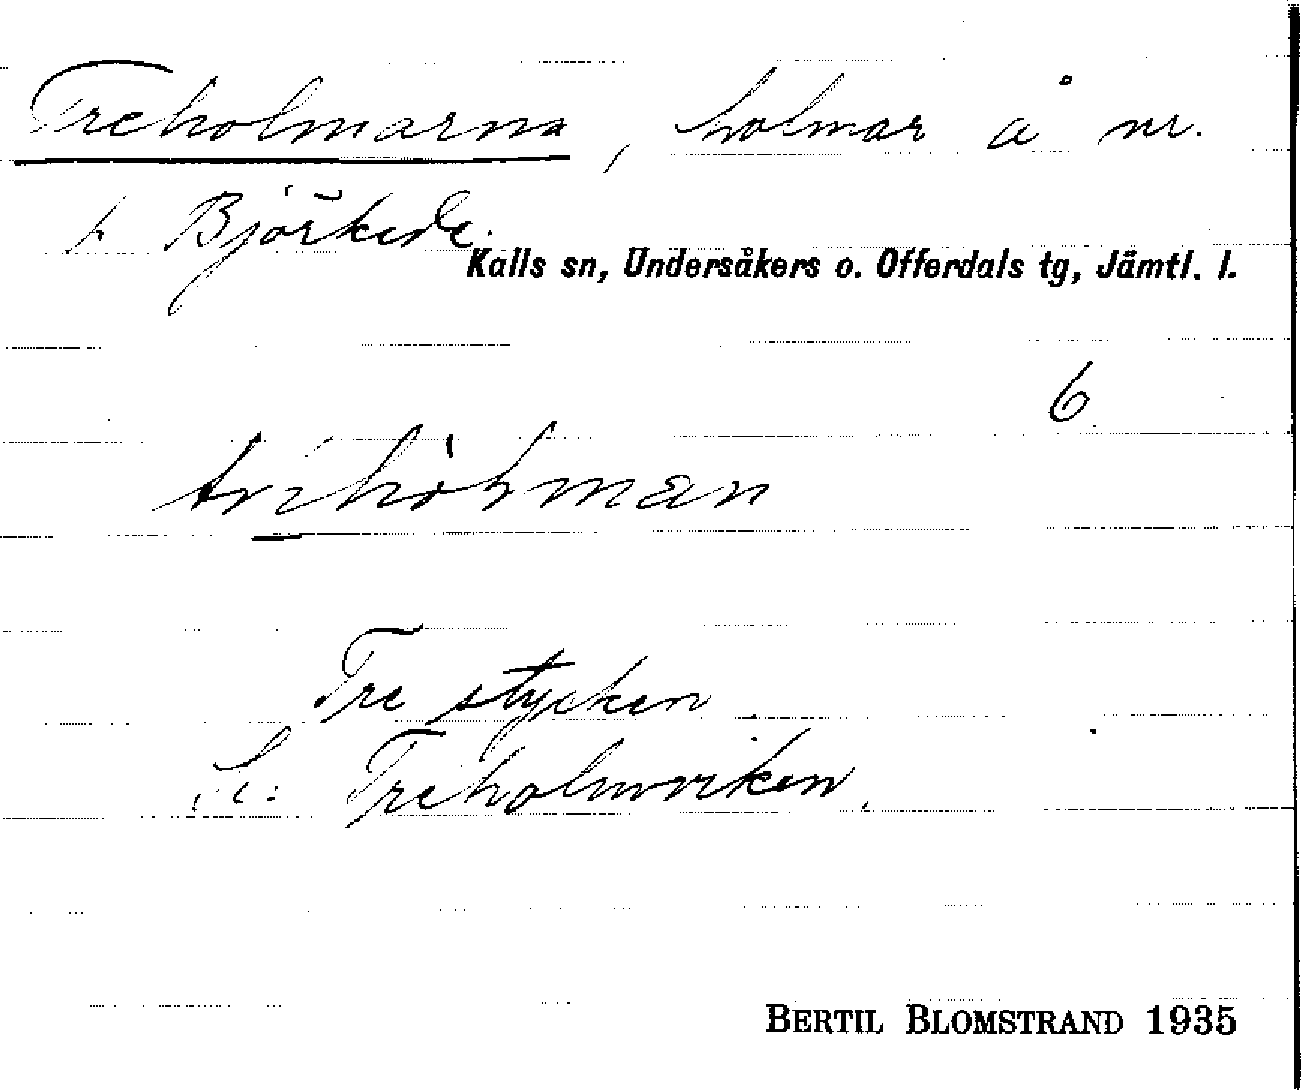 Treholmarna, holmar å nr.
t Björkede.
Kalls sn, Undersåkers o. Offerdals tg, Jämtl. l.
6
Tre stycken
Se: Treholmviken.
BERTIL BLOMSTRAND 1935